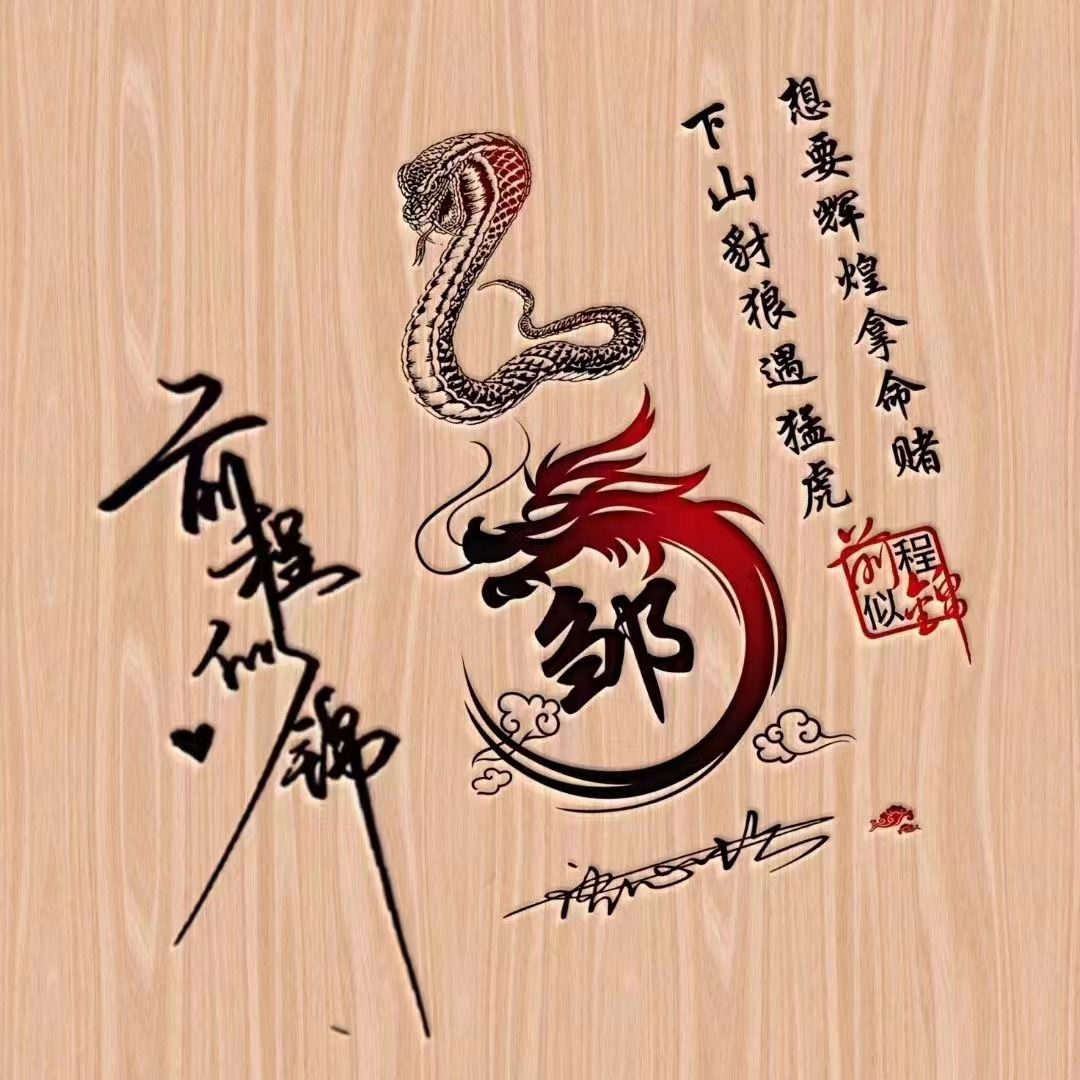 想要辉煌拿命赌
下山豺狼遇猛虎
前程似锦
邹
前程似锦